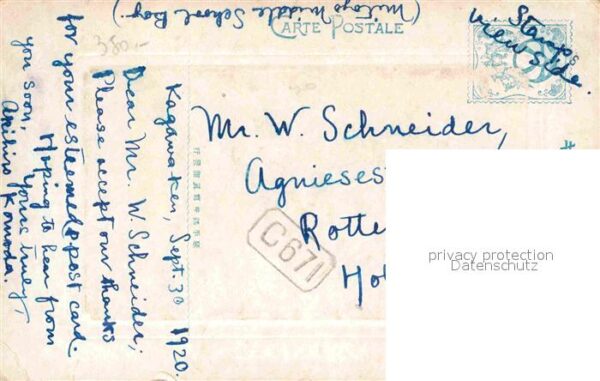 (Mitoyo Middle School Boy.)
CARTE POSTALE
Stamps
view side.
380.-
Kagawaken, Sept. 30 1920.
Dear Mr. W. Schneider,
Please accept our thanks
for your esteemed post card.
Hoping to hear from
you soon,
Yours truly,
Komoda.
Mr. W. Schneider,
Agnieses
Rotte
Ho
C671
privacy protection
Datenschutz